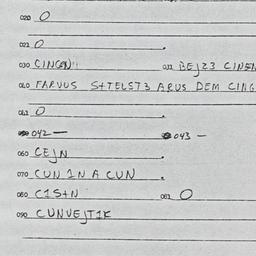 020 O
021 O
030 CINGN 031 BEJZ3 CINEN
040 FARVUS S+TELST3 ARUS DEM CING
041 O
042 — 043 —
060 CEJN
070 CUN IN A CUN
080 CIS+N 081 O
090 CUNVEJTIK